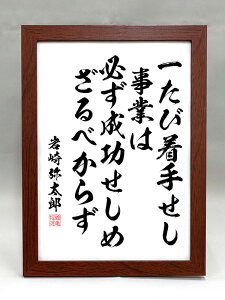 一たび着手せし
事業は
必ず成功せしめ
ざるべからず
岩崎弥太郎